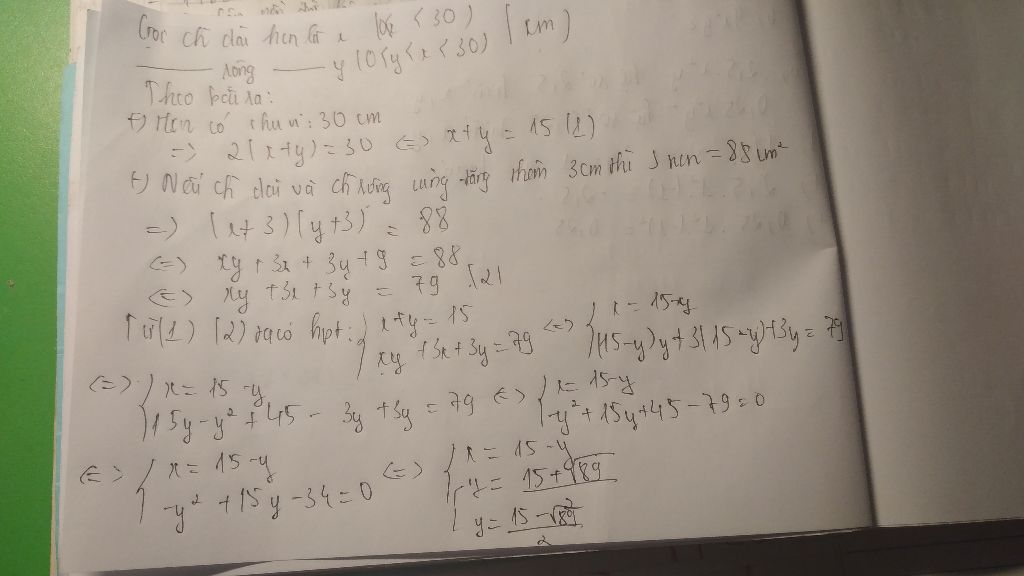 Gọi ch dài hcn là x (0<x<30) (cm)
rộng y (0<y<x<30)
Theo bài ra:
+) Hcn có chu vi: 30 cm
=> 2(x+y)=30 <=> x+y = 15 (1)
+) Nếu ch dài và ch rộng cùng tăng thêm 3cm thì S hcn = 88 cm²
=> (x+3)(y+3) = 88
<=> xy + 3x + 3y + 9 = 88
<=> xy + 3x + 3y = 79 (2)
Từ (1) (2) ta có hpt: { x+y = 15 <=> { x = 15-y
xy + 3x + 3y = 79 (15-y)y + 3(15-y)+3y = 79
<=> { x = 15-y <=> { x = 15-y
15y - y² + 45 - 3y + 3y = 79 -y² + 15y + 45 - 79 = 0
<=> { x = 15-y <=> { x = 15-y
-y² + 15y - 34 = 0 [ y = 15+√89
2
y = 15-√89
2